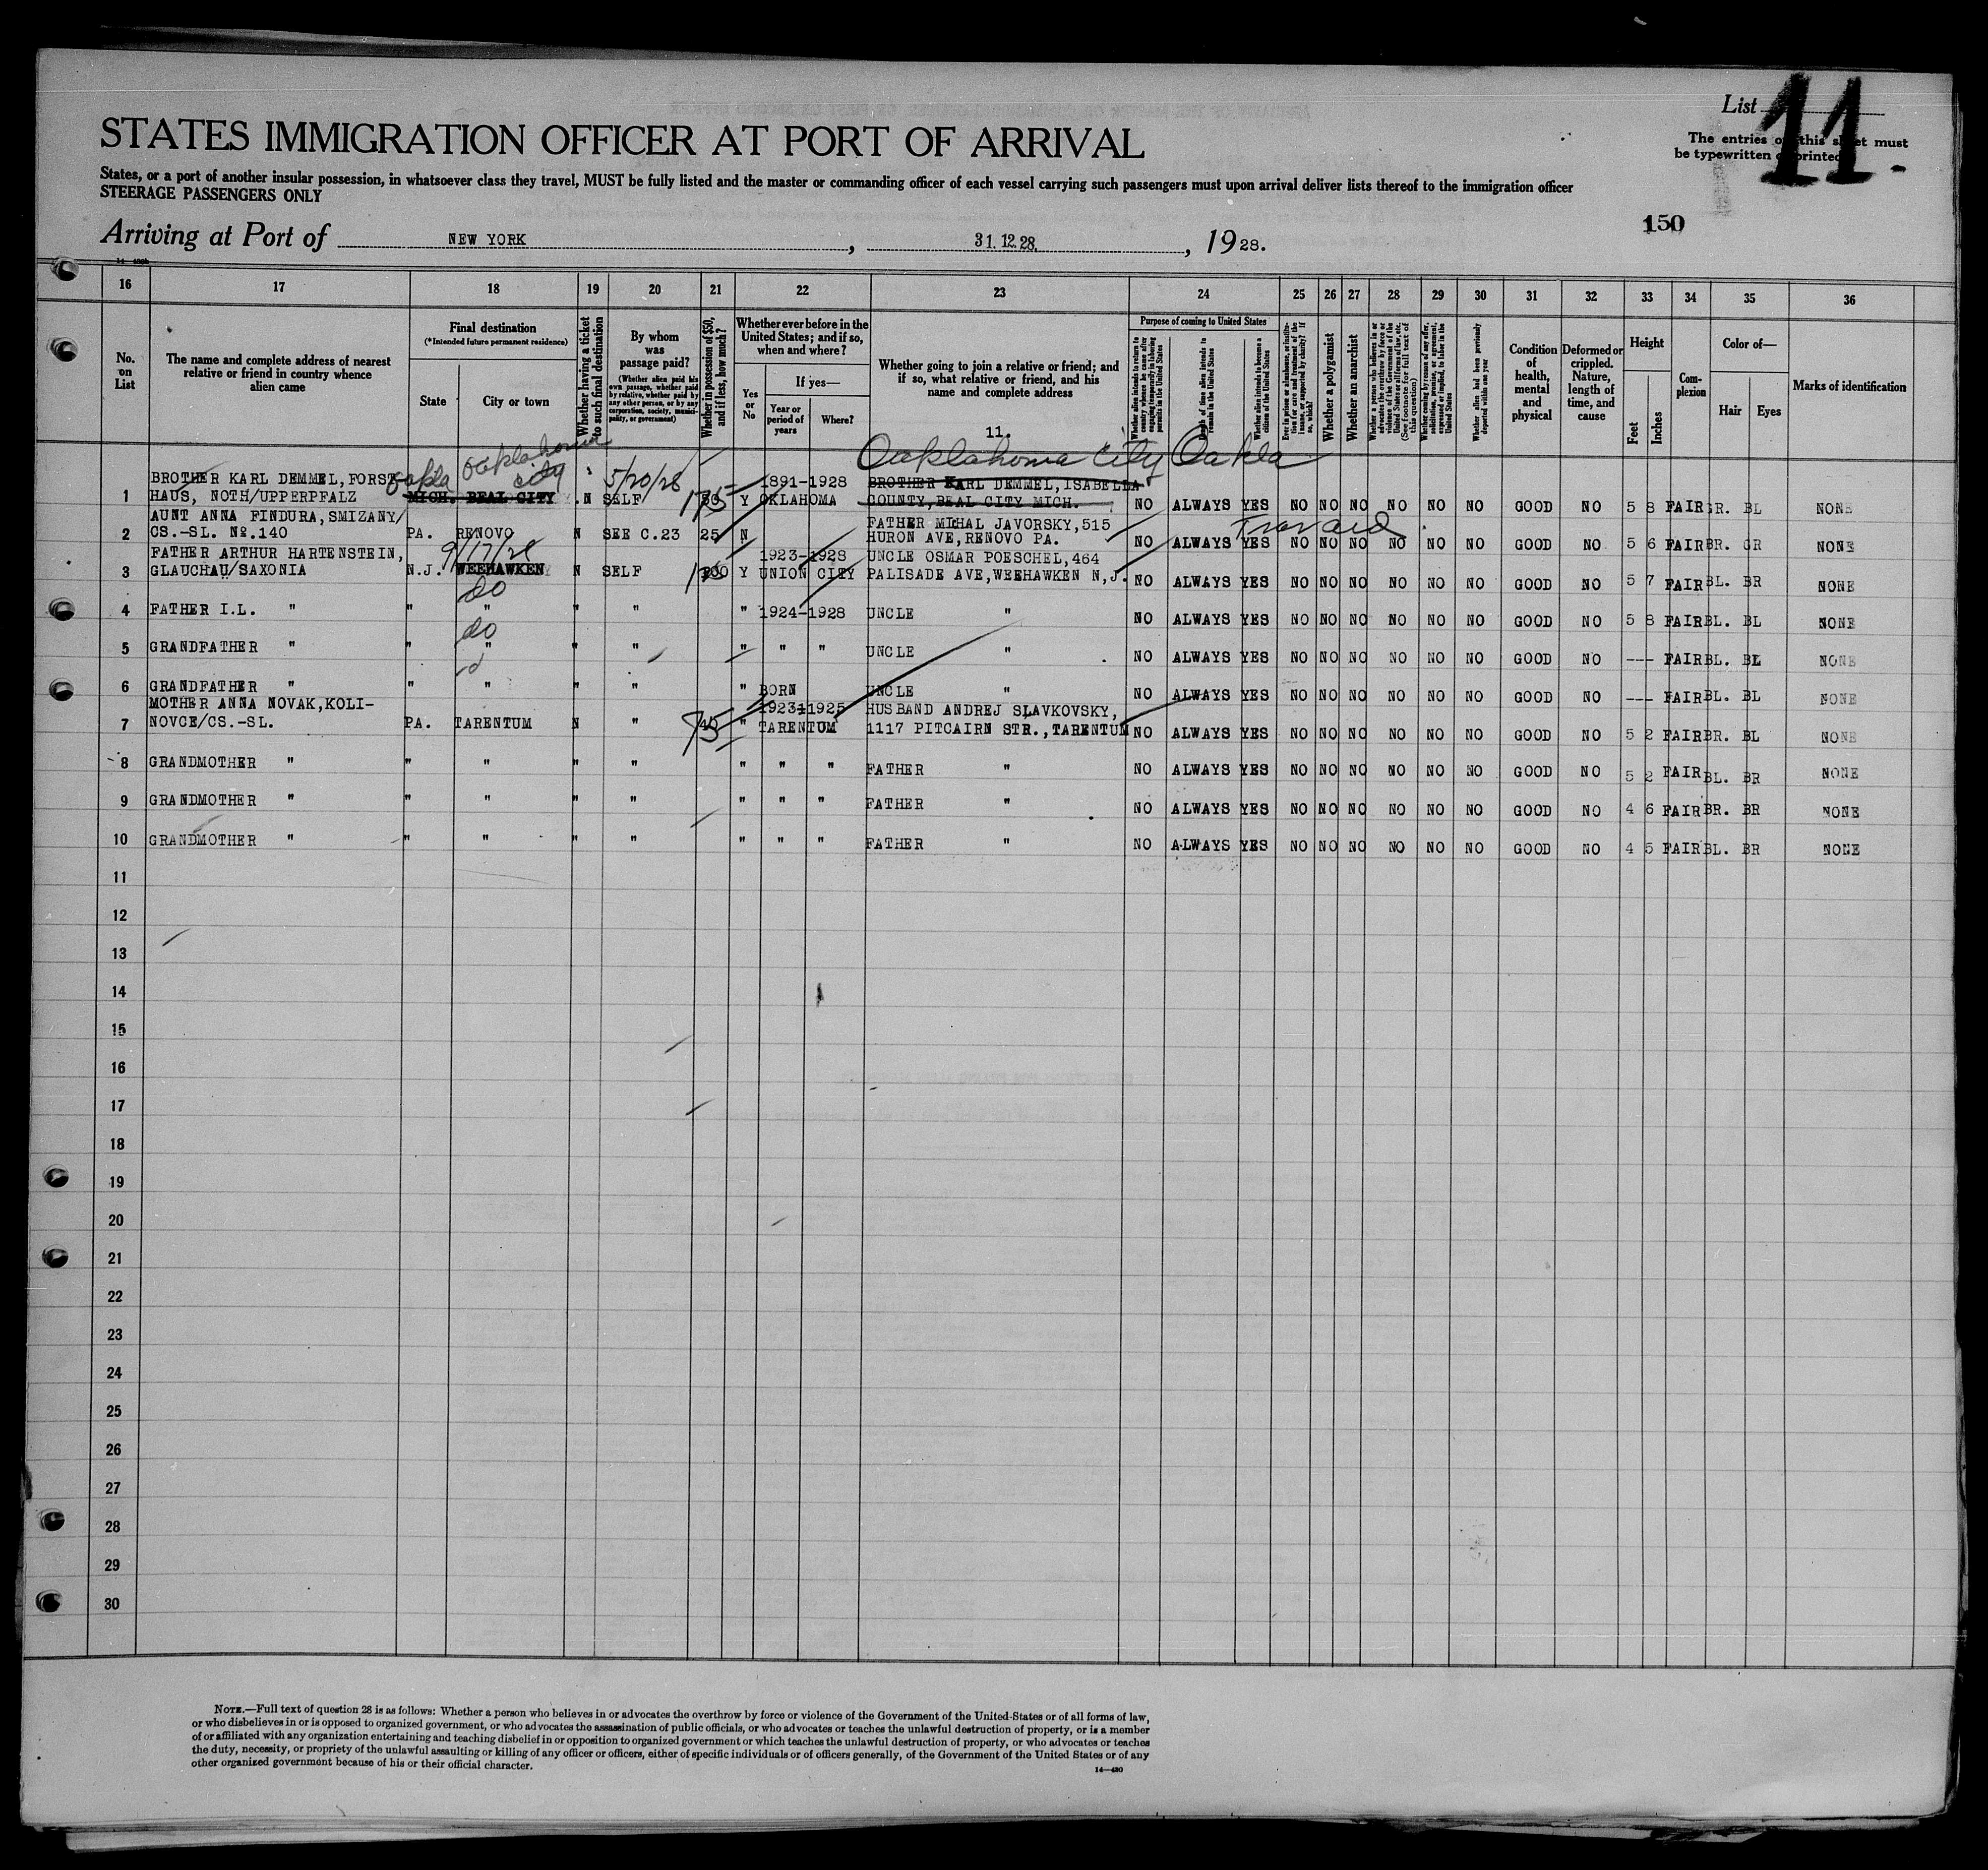 List 11.
The entries on this sheet must
be typewritten or printed
STATES IMMIGRATION OFFICER AT PORT OF ARRIVAL
States, or a port of another insular possession, in whatsoever class they travel, MUST be fully listed and the master or commanding officer of each vessel carrying such passengers must upon arrival deliver lists thereof to the immigration officer
STEERAGE PASSENGERS ONLY
150
Arriving at Port of NEW YORK, 31.12.28., 1928.
16 17 18 19 20 21 22 23 24 25 26 27 28 29 30 31 32 33 34 35 36
No. on List
The name and complete address of nearest
relative or friend in country whence
alien came
Final destination
(*Intended future permanent residence)
State
City or town
Whether having a ticket
to such final destination
By whom
was
passage paid?
(Whether alien paid his
own passage, whether paid
by relative, whether paid by
any other person, or by any
corporation, society, munici-
pality, or government)
Whether in possession of $50,
and if less, how much?
Whether ever before in the
United States; and if so,
when and where?
Yes or No
If yes—
Year or period of years
Where?
Whether going to join a relative or friend; and
if so, what relative or friend, and his
name and complete address
11.
Purpose of coming to United States
Whether a polygamist
Whether an anarchist
Whether alien had been previously
deported within one year
Condition of health, mental and physical
Deformed or crippled. Nature, length of time, and cause
Height
Feet
Inches
Com-
plexion
Color of—
Hair
Eyes
Marks of identification
Oakla Oaklahoma city 5/20/28 Oaklahoma City Oakla
BROTHER KARL DEMMEL, FORST- 1891-1928 BROTHER KARL DEMMEL, ISABELLA
1 HAUS, NOTH/UPPERPFALZ MICH. BEAL CITY N SELF 175 Y OKLAHOMA COUNTY, BEAL CITY MICH. NO ALWAYS YES NO NO NO NO NO NO GOOD NO 5 8 FAIR GR. BL NONE
AUNT ANNA FINDURA, SMIZANY/ FATHER MIHAL JAVORSKY, 515
2 CS.-SL. Nº.140 PA. RENOVO N SEE C.23 25 N HURON AVE, RENOVO PA. NO ALWAYS YES NO NO NO NO NO NO GOOD NO 5 6 FAIR BR. GR NONE
FATHER ARTHUR HARTENSTEIN, 9/17/28 1923-1928 UNCLE OSMAR POESCHEL, 464
3 GLAUCHAU/SAXONIA N.J. WEEHAWKEN N SELF Y UNION CITY PALISADE AVE, WEEHAWKEN N,J. NO ALWAYS YES NO NO NO NO NO NO GOOD NO 5 7 FAIR BL. BR NONE
do
4 FATHER I.L. " " " " " " 1924-1928 UNCLE " NO ALWAYS YES NO NO NO NO NO NO GOOD NO 5 8 FAIR BL. BL NONE
do
5 GRANDFATHER " " " " " " " " UNCLE " NO ALWAYS YES NO NO NO NO NO NO GOOD NO --- FAIR BL. BL NONE
6 GRANDFATHER " " " " " " BORN UNCLE " NO ALWAYS YES NO NO NO NO NO NO GOOD NO --- FAIR BL. BL NONE
MOTHER ANNA NOVAK, KOLI- 1923-1925 HUSBAND ANDREJ SLAVKOVSKY,
7 NOVCE/CS.-SL. PA. TARENTUM N " " TARENTUM 1117 PITCAIRN STR., TARENTUM NO ALWAYS YES NO NO NO NO NO NO GOOD NO 5 2 FAIR BR. BL NONE
8 GRANDMOTHER " " " " " " " " FATHER " NO ALWAYS YES NO NO NO NO NO NO GOOD NO 5 2 FAIR BL. BR NONE
9 GRANDMOTHER " " " " " " " " FATHER " NO ALWAYS YES NO NO NO NO NO NO GOOD NO 4 6 FAIR BR. BR NONE
10 GRANDMOTHER " " " " " " " " FATHER " NO ALWAYS YES NO NO NO NO NO NO GOOD NO 4 5 FAIR BL. BR NONE
11
12
13
14
15
16
17
18
19
20
21
22
23
24
25
26
27
28
29
30
NOTE.—Full text of question 28 is as follows: Whether a person who believes in or advocates the overthrow by force or violence of the Government of the United States or of all forms of law,
or who disbelieves in or is opposed to organized government, or who advocates the assassination of public officials, or who advocates or teaches the unlawful destruction of property, or is a member
of or affiliated with any organization entertaining and teaching disbelief in or opposition to organized government or which teaches the unlawful destruction of property, or who advocates or teaches
the duty, necessity, or propriety of the unlawful assaulting or killing of any officer or officers, either of specific individuals or of officers generally, of the Government of the United States or of any
other organized government because of his or their official character.
14—430